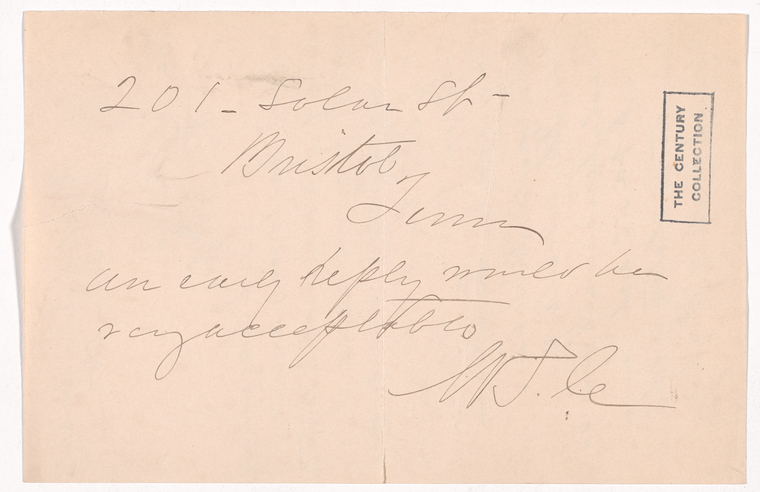 201 - Solar St -
Bristol,
Tenn
an early reply would be
very acceptable
THE CENTURY
COLLECTION